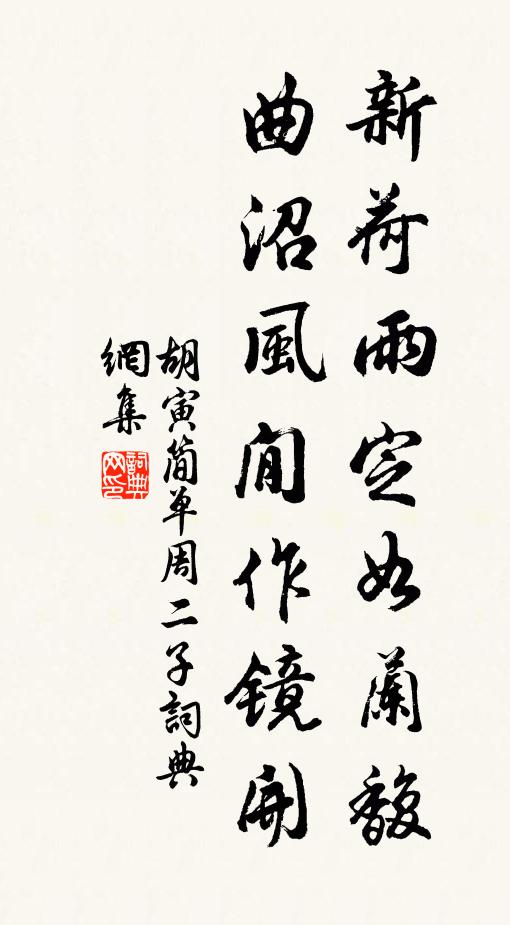 新荷雨定如蘭馥
曲沼風閒作鏡開
胡寅簡單周二子詞典
網集
詞典網印